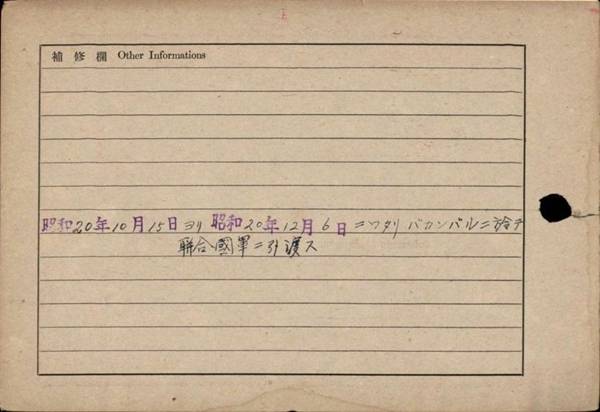 補修欄 Other Informations
昭和20年10月15日ヨリ 昭和20年12月6日ニワタリ パカンバルニ於テ
聯合國軍ニ引渡ス